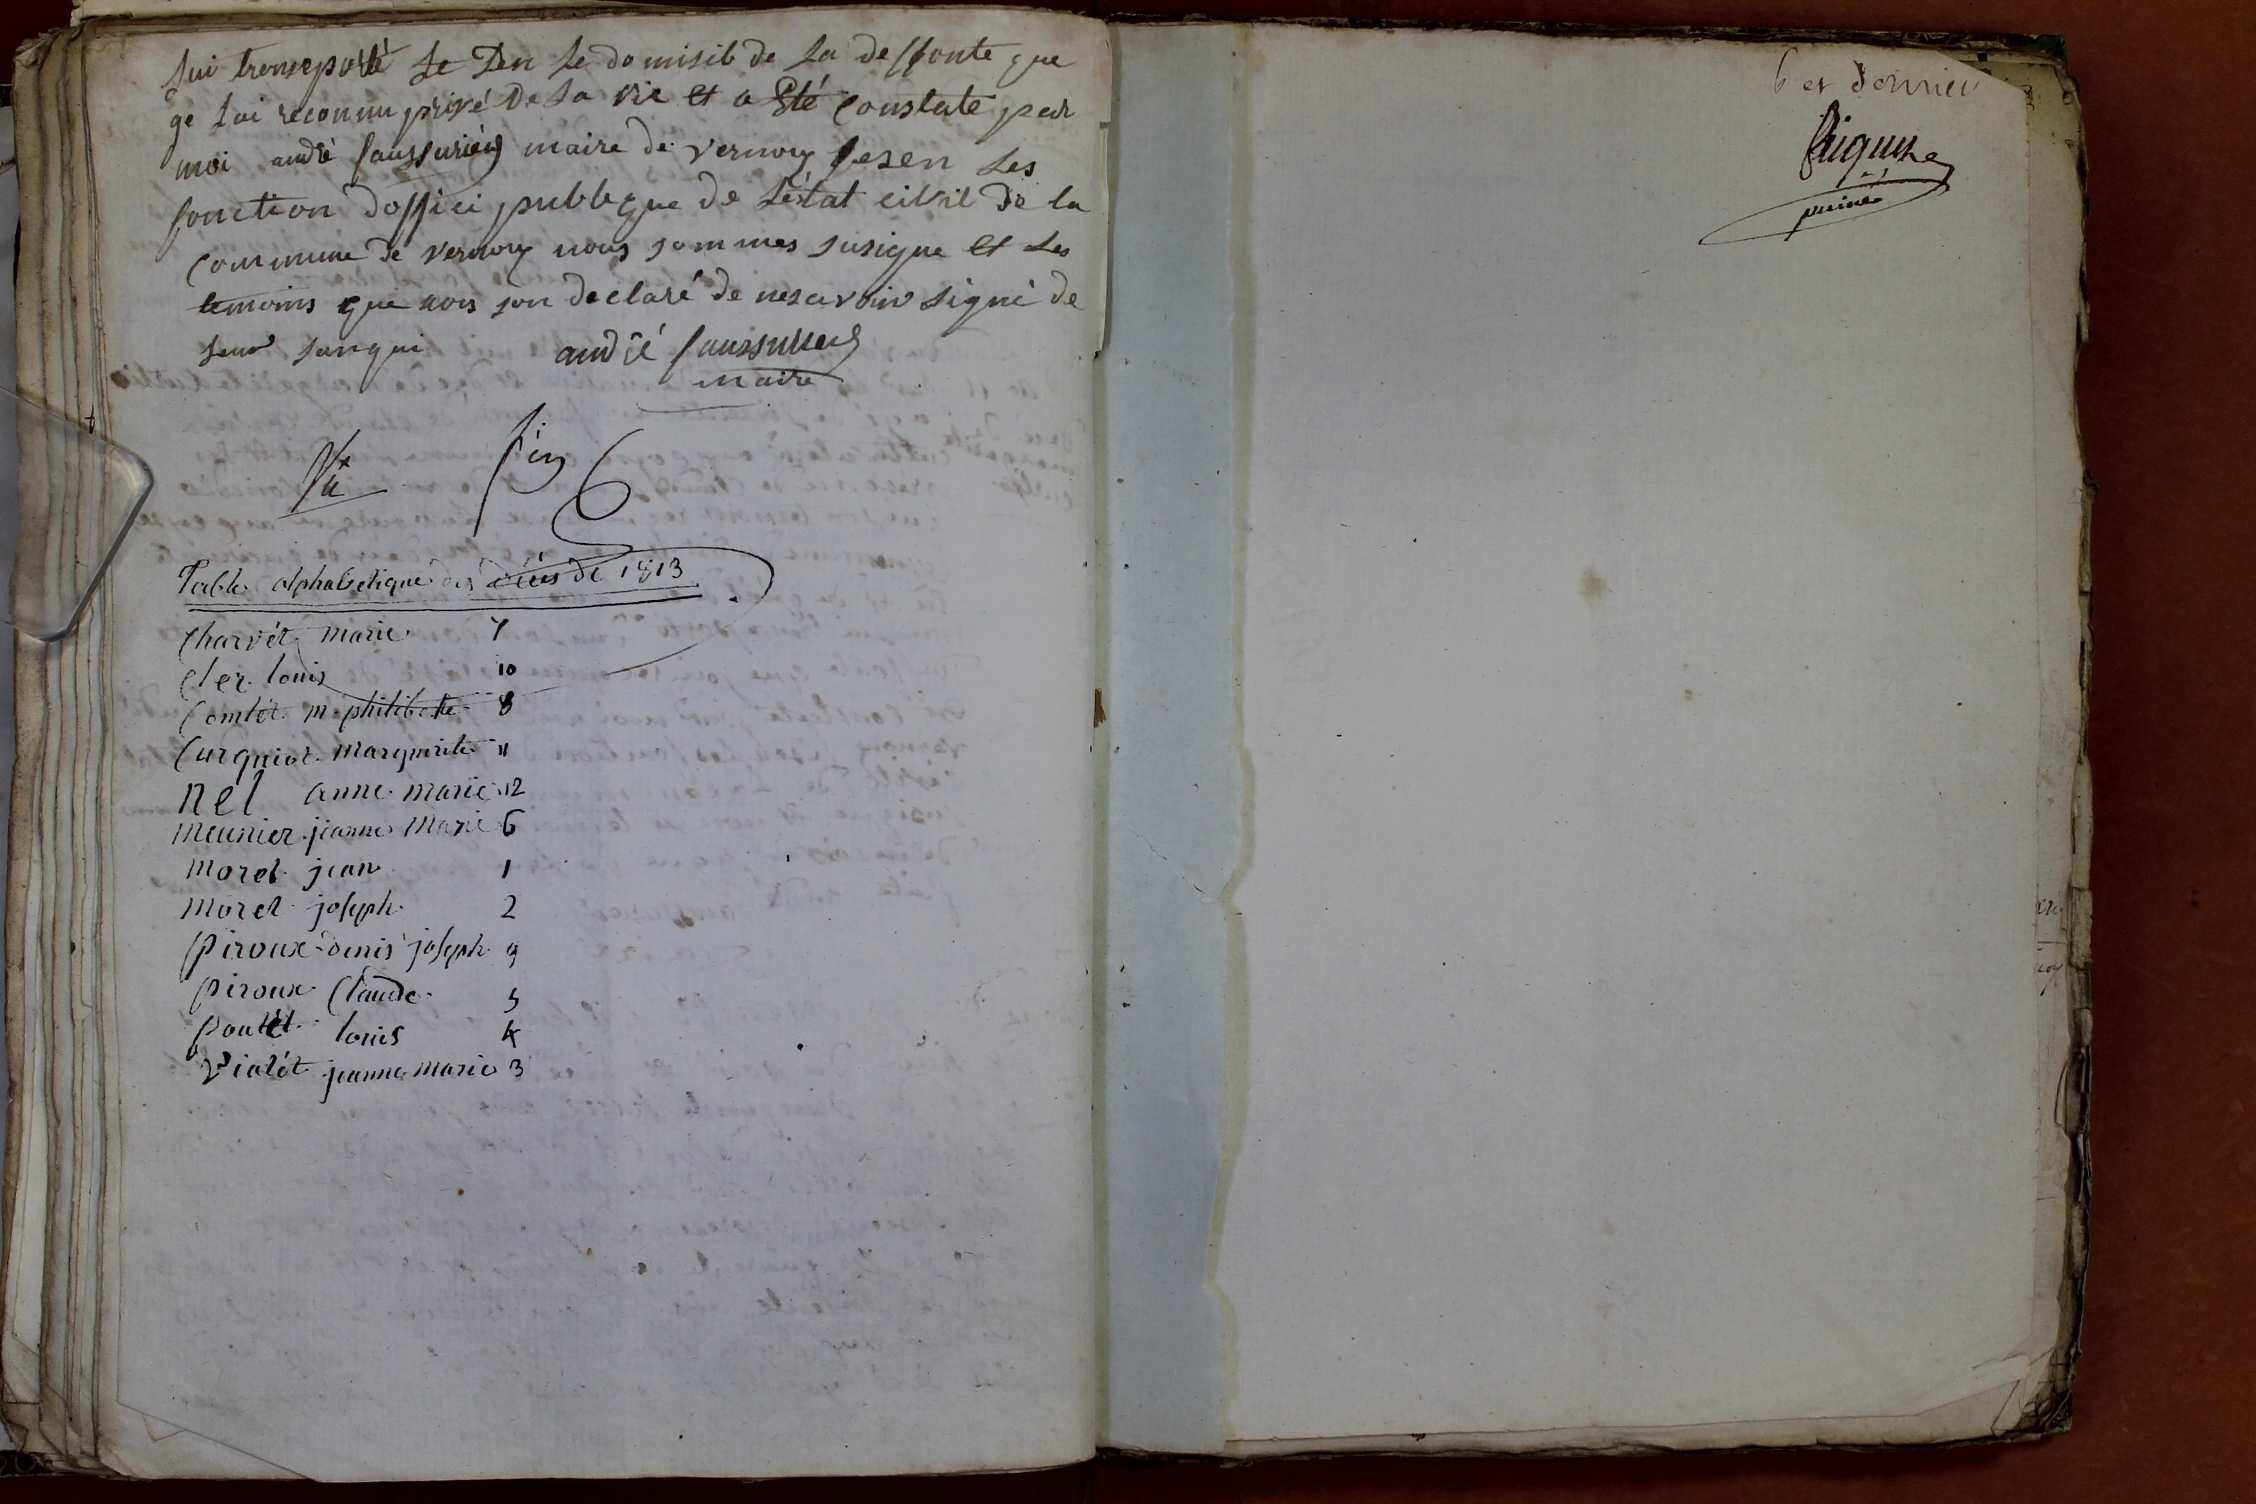 sui transporté Le Den le domisil de La deffonte que
ge lai reconnu privé De la vie et a Eté constaté par
moi andré saussurier maire de vernoux fesen Les
fonction doffici publique de L'éstat cilvil de la
Commune de vernoux nous sommes susigne et Les
temoins que nous son declaré de nesavoir signé de
seus sanqui
andré saussurier
maire
fin
Table alphabetique des décès de 1813
Charvét marie 7
Clerc louis 10
Comtet m. philiberte 8
Curguiot marguerite 11
nel anne marie 12
meunier jeanne marie 6
morel jean 1
morel joseph 2
piroux denis joseph 9
piroux Claude 5
poulet louis 4
Vialét jeanne marie 3
6 et dernier